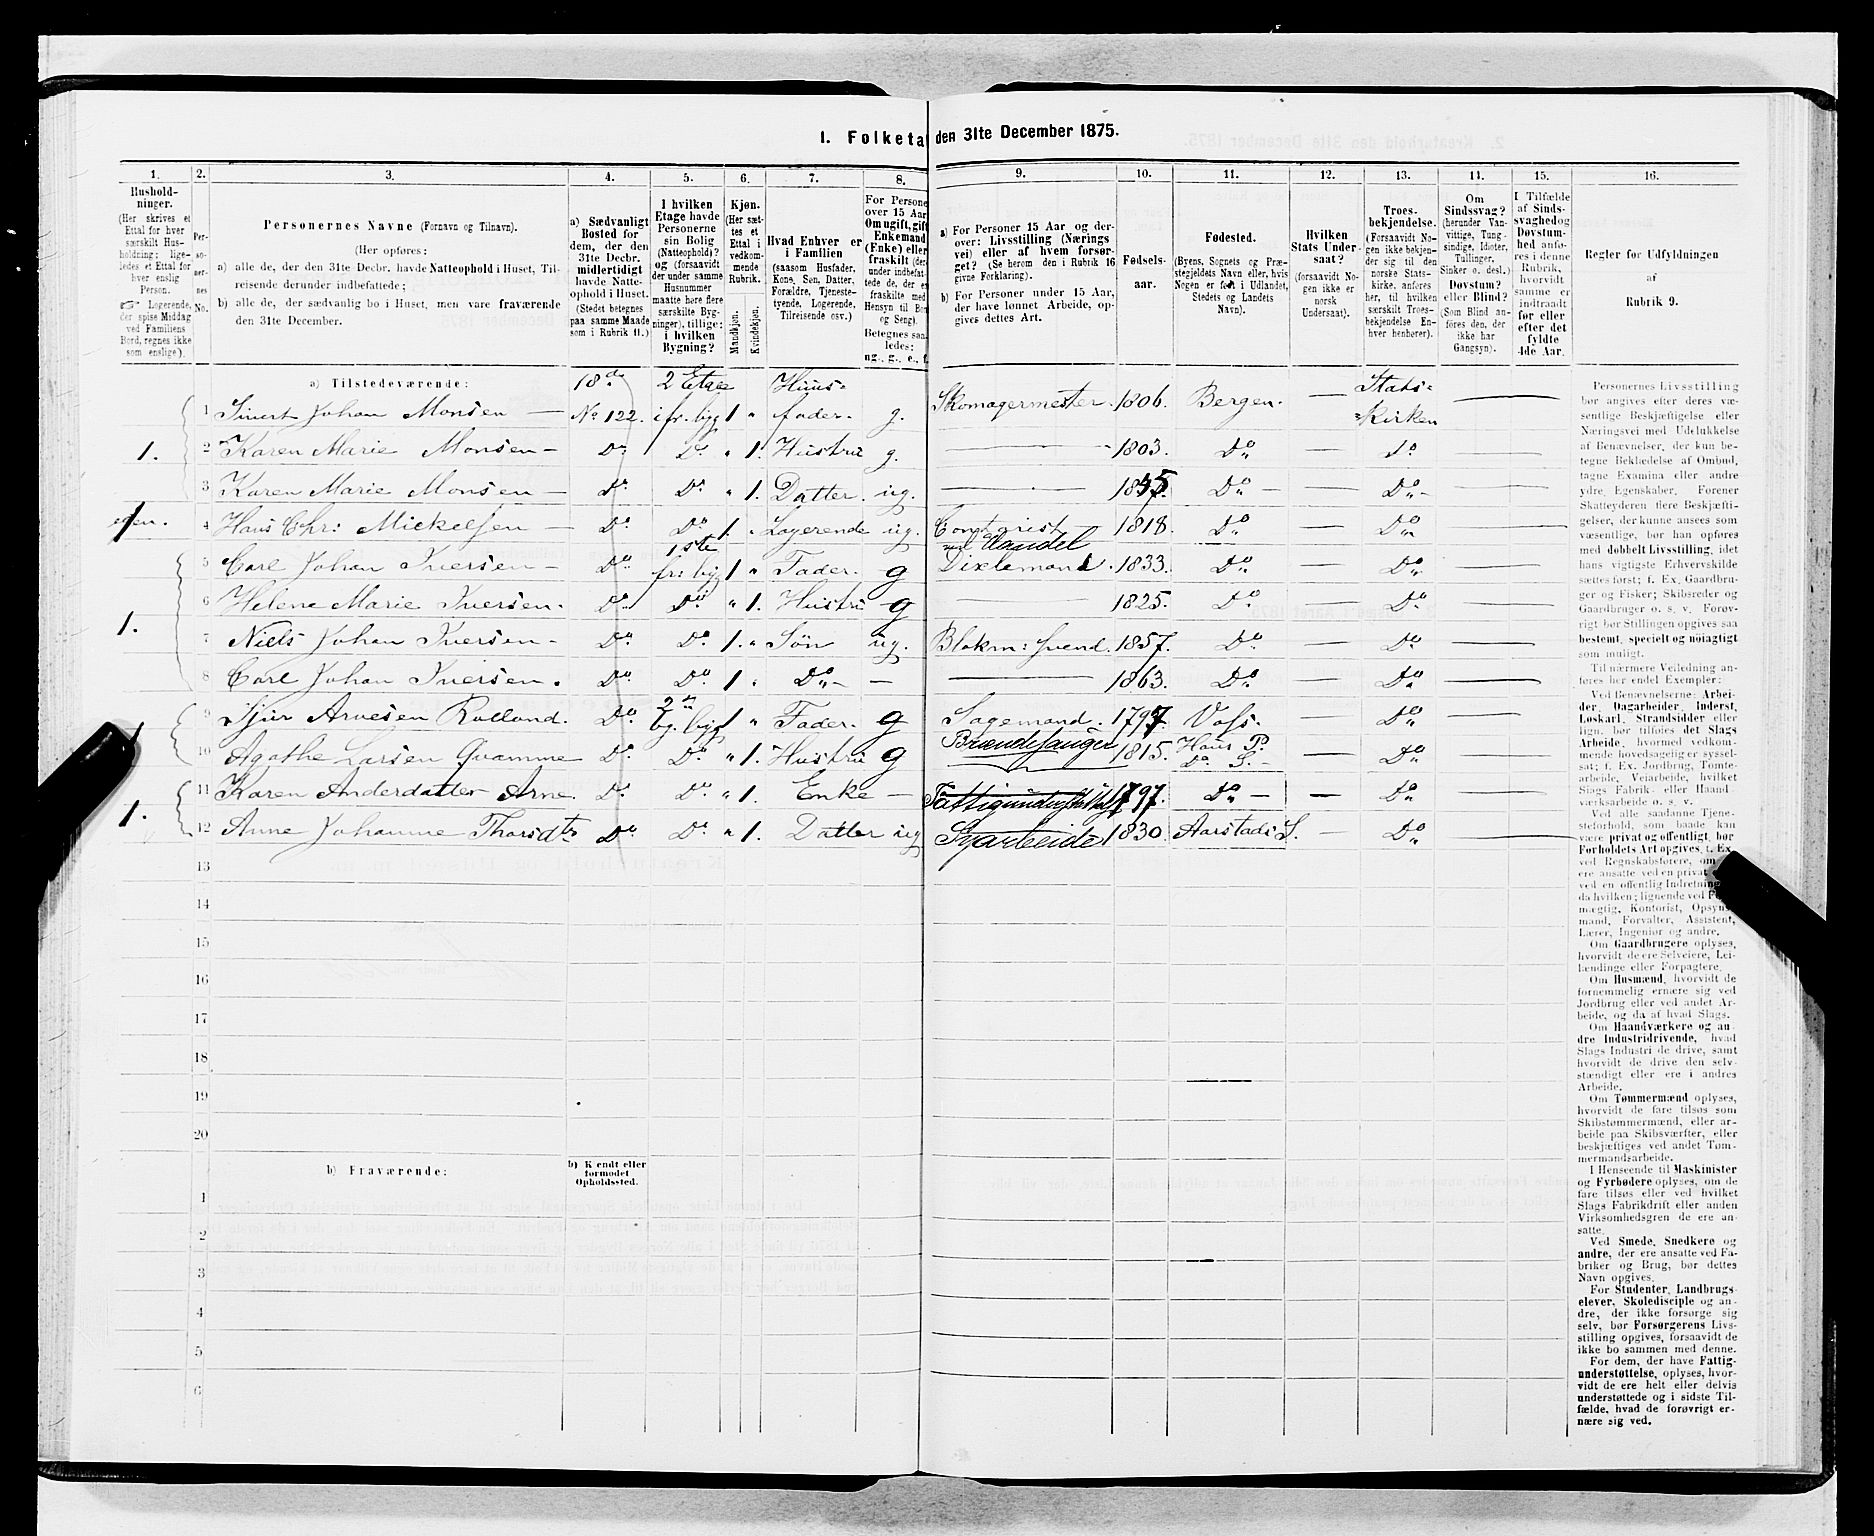 1. Folketal den 31te December 1875.
1. 2. 3. 4. 5. 6. 7. 8. 9. 10. 11. 12. 13. 14. 15. 16.
Hushold-
ninger.
(Her skrives et
Ettal for hver
særskilt Hus-
holdning; lige-
ledes et Ettal for
hver enslig
Person.
☞ Logerende,
der spise Middag
ved Familiens
Bord, regnes ikke
som enslige).
Per-
so-
ner-
nes
No.
Personernes Navne (Fornavn og Tilnavn).
(Her opføres:
a) alle de, der den 31te Decbr. havde Natteophold i Huset, Til-
reisende derunder indbefattede;
b) alle de, der sædvanlig bo i Huset, men vare fraværende
den 31te December.
a) Sædvanligt
Bosted for
dem, der den
31te Decbr.
midlertidigt
havde Natte-
ophold i Huset.
(Stedet betegnes
paa samme Maade
som i Rubrik 11.)
I hvilken
Etage havde
Personerne
sin Bolig
(Natteophold)?
og (forsaavidt
der under samme
Husnummer
maatte høre flere
særskilte Byg-
ninger), tillige:
i hvilken
Bygning?
Kjøn.
(Her sæt-
tes et
Ettal i
vedkom-
mende
Rubrik.
Mandkjøn.
Kvindekjøn.
Hvad Enhver er
i Familien
(saasom Husfader,
Kone, Søn, Datter,
Forældre, Tjeneste-
tyende, Logerende,
Tilreisende osv.)
For Persone
over 15 Aar
Om ugift, gift
Enkemand
(Enke) eller
fraskilt (der-
under indbefat-
tede de, der er
fraskilte med
Hensyn til Bor
og Seng).
Betegnes saa-
ledes:
ug., g., e., f.
a) For Personer 15 Aar og der-
over: Livsstilling (Nærings
vei) eller af hvem forsør-
get? (Se herom den i Rubrik 16
givne Forklaring).
b) For Personer under 15 Aar,
der have lønnet Arbeide, op-
gives dettes Art.
Fødsels-
aar.
Fødested.
(Byens, Sognets og Præ-
stegjeldets Navn eller, hvis
Nogen er født i Udlandet,
Stedets og Landets
Navn).
Hvilken
Stats Under-
saat?
(forsaavidt No-
gen ikke er
norsk
Undersaat).
Troes-
bekjendelse.
(Forsaavidt No-
gen ikke bekjen-
der sig til den
norske Stats-
kirke, anføres
her, til hvilken
særskilt Troes-
bekjendelse En-
hver henhører).
Om
Sindssvag?
(herunder Van-
vittige, Tung-
sindige, Idioter,
Tullinger,
Sinker o. desl.)
Døvstum?
eller Blind?
(Som Blind an-
føres den, der
ikke har
Gangsyn).
I Tilfælde
af Sinds-
svaghed og
Døvstum-
hed anfø-
res i denne
Rubrik,
hvorvidt
samme er
indtraadt
før eller
efter det
fyldte
4de Aar.
Regler for Udfyldningen
af
Rubrik 9.
a) Tilstedeværende:
18de 2 Etage Huus- Stats-
1 Sivert Johan Monsen — No 122. i fr. byg 1 " fader. g. Skomagermester. 1806. Bergen. — Kirken
1. 2 Karen Marie Monsen — Do Do " 1. Hustru g. — 1803. Do — Do
3 Karen Marie Monsen — Do Do " 1. Datter. ug. — 1845. Do — Do
4 Hans Chr: Mickelsen — Do Do 1. " Logerende ug. Contorist 1818. Do — Do
1ste ved Handel
5 Carl Johan Iversen — Do fr: byg 1 " Fader. g Dixlemand. 1833. Do — Do
6 Helene Marie Iversen. Do Do " 1. Hustru g — 1825. Do — Do
1. 7 Niels Johan Iversen — Do Do 1. " Søn ug. Blokm: svend. 1857. Do — Do
8 Carl Johan Iversen. Do Do 1 " Do — — 1863. Do — Do
2den
1 9 Sjur Arnesen Rolland. Do bg. byg 1 " Fader. g Sagemand. 1797. Vors. — Do
10 Agathe Larsen Qvamme Do Do " 1. Hustru g 1815. Haus P. — Do
Do S.
11 Karen Andersdatter Arne. Do Do " 1. Enke — 1797. Do — Do
1. 12 Anne Johanne Thorsdtr Do Do " 1. Datter ug Syarbeide 1830. Aarstads S. — Do
13
14
15
16
17
18
19
20
b) Fraværende: b) Kjendt eller
formodet
Opholdssted.
1
2
3
4
5
6
Personernes Livsstilling
bør angives efter deres væ-
sentlige Beskjæftigelse eller
Næringsvei med Udelukkelse
af Benævnelser, der kun be-
tegne Beklædelse af Ombud,
tagne Examina eller andre
ydre Egenskaber. Forener
Skatteyderen flere Beskjæfti-
gelser, der kunne ansees som
væsentlige, bør han opføres
med dobbelt Livsstilling, idet
hans vigtigste Erhvervskilde
sættes først; f. Ex. Gaardbru-
ger og Fisker; Skibsreder og
Gaardbruger o. s. v. Forøv-
rigt bør Stillingen opgives saa
bestemt, specielt og nøiagtigt
som muligt.
Til nærmere Veiledning an-
føres her endel Exempler:
Ved Benævnelserne: Arbei-
der, Dagarbeider, Inderst,
Løskarl, Strandsidder eller
lign. bør tilføies det Slags
Arbeide, hvormed vedkom-
mende hovedsagelig er syssel-
sat; f. Ex. Jordbrug, Tomte-
arbeide, Veiarbeide, hvilket
Slags Fabrik- eller Haand-
værksarbeide o. s. v.
Ved alle saadanne Tjene-
steforhold, som baade kan
være privat og offentligt, bør
Forholdets Art opgives, f. Ex.
ved Regnskabsførere, om
ere ansatte ved en privat
ved en offentlig Indretning
da hvilken; lignende ved
mægtig, Kontorist, Opsyns-
mand, Forvalter, Assistent,
Lærer, Ingeniør og andre.
Om Gaardbrugere oplyses,
hvorvidt de ere Selveiere, Lei-
lændinge eller Forpagtere.
Om Husmænd, hvorvidt de
fornemmelig ernære sig ved
Jordbrug eller ved andet Ar-
beide, og da af hvad Slags.
Om Haandværkere og an-
dre Industridrivende, hvad
Slags Industri de drive, samt
hvorvidt de drive den selv-
stændigt eller ere i andres
Arbeide.
Om Tømmermænd oplyses,
hvorvidt de fare tilsøs som
Skibstømmermænd, eller ar-
beide paa Skibsværfter, eller
beskjæftiges ved andet Tøm-
mermandsarbeide.
I Henseende til Maskinister
og Fyrbødere oplyses, om de
fare tilsøs eller ved hvilket
Slags Fabrikdrift eller anden
Virksomhedsgren de ere an-
satte.
Ved Smede, Snedkere og
andre, der ere ansatte ved Fa-
briker og Brug, bør dettes
Navn opgives.
For Studenter, Landbrugs-
elever, Skoledisciple og an-
dre, der ikke forsørge sig
selv, bør Forsørgerens Livs-
stilling opgives, forsaavidt de
ikke bo sammen med denne.
For dem, der have Fattig-
understøttelse, oplyses, hvor-
vidt de ere helt eller delvis
understøttede og i sidste Til-
fælde, hvad de forøvrigt er-
nære sig ved.